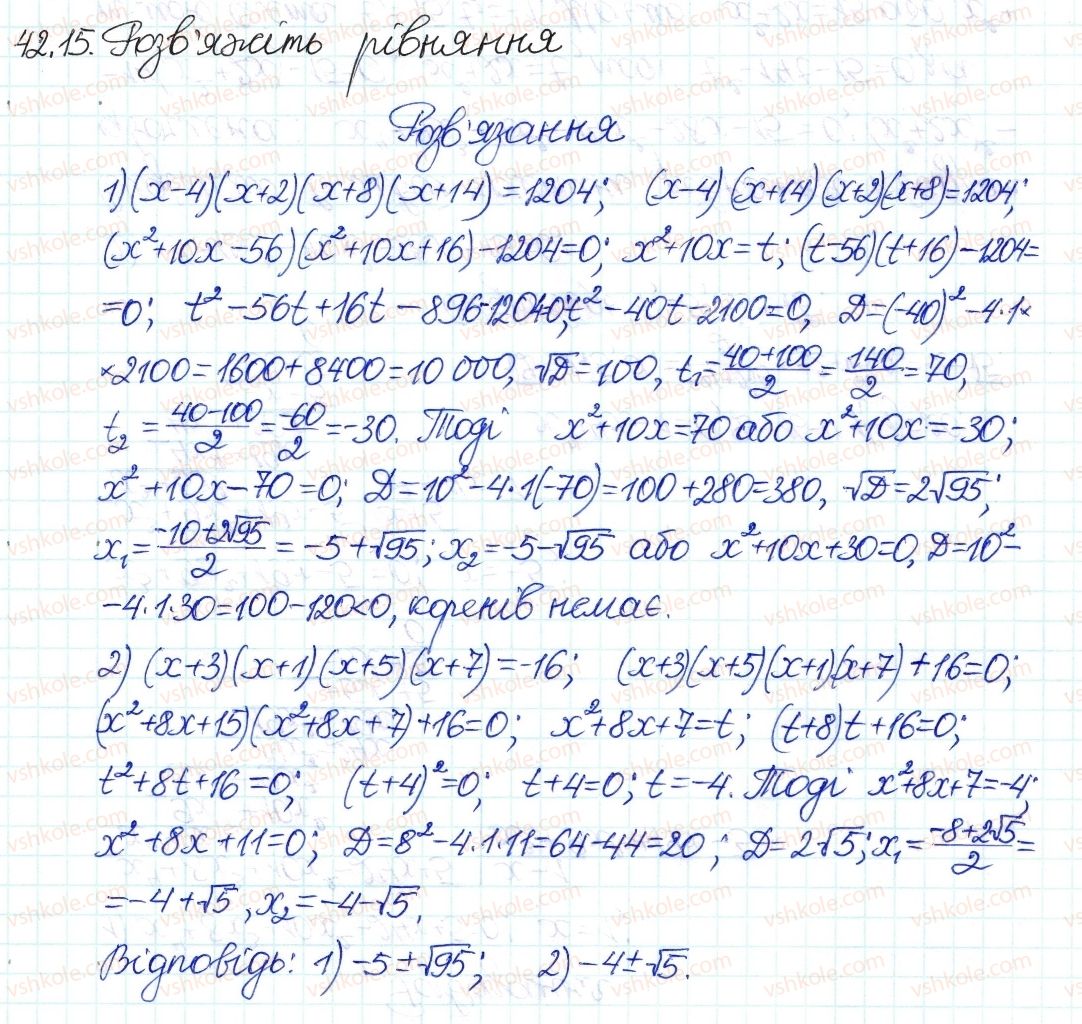 42.15. Розв'яжіть рівняння
Розв'язання
1) (x-4)(x+2)(x+8)(x+14)=1204; (x-4)(x+14)(x+2)(x+8)=1204;
(x²+10x-56)(x²+10x+16)-1204=0; x²+10x=t; (t-56)(t+16)-1204=
=0; t²-56t+16t-896-1204=0; t²-40t-2100=0, D=(-40)²-4·1×
×2100=1600+8400=10 000, √D=100, t₁=(40+100)/2=140/2=70,
t₂=(40-100)/2=-60/2=-30. Тоді x²+10x=70 або x²+10x=-30;
x²+10x-70=0; D=10²-4·1(-70)=100+280=380, √D=2√95;
x₁=(-10+2√95)/2=-5+√95; x₂=-5-√95 або x²+10x+30=0, D=10²-
-4·1·30=100-120<0, коренів немає.
2) (x+3)(x+1)(x+5)(x+7)=-16; (x+3)(x+5)(x+1)(x+7)+16=0;
(x²+8x+15)(x²+8x+7)+16=0; x²+8x+7=t; (t+8)t+16=0;
t²+8t+16=0; (t+4)²=0; t+4=0; t=-4. Тоді x²+8x+7=-4;
x²+8x+11=0; D=8²-4·1·11=64-44=20; D=2√5; x₁=(-8+2√5)/2=
=-4+√5, x₂=-4-√5.
Відповідь: 1) -5±√95; 2) -4±√5.